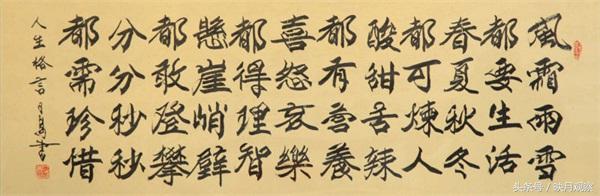 風霜雨雪
都要生活
春夏秋冬
都可煉人
酸甜苦辣
都有营養
喜怒哀樂
都得理智
懸崖峭壁
都敢登攀
分分秒秒
都需珍惜
人生格言 月 書
头条号 / 映月观察